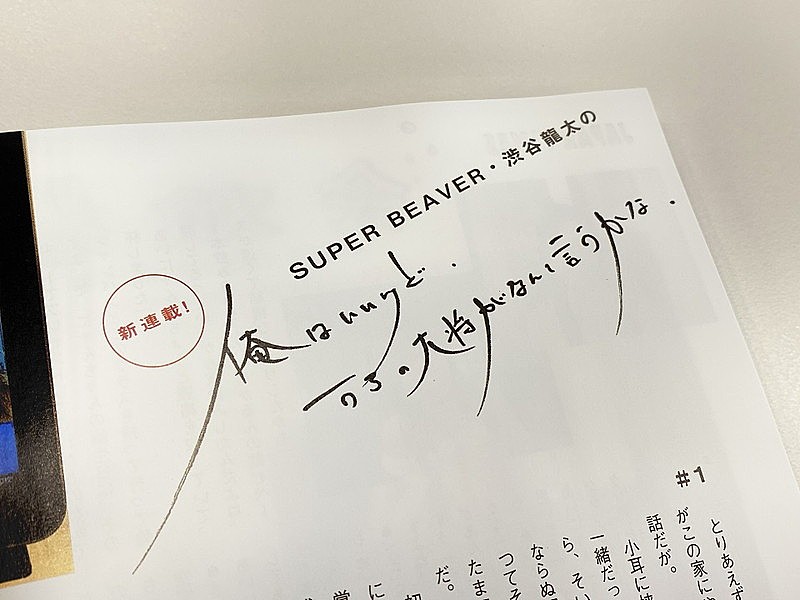 SUPER BEAVER・渋谷龍太の
新連載!
俺はいいけど、
うちの大将がなんて言うかな。
#1
とりあえず
がこの家に
話だが。
小耳に
一緒だっ
ら、そい
ならぬ
つてそ
たま
だ。
に